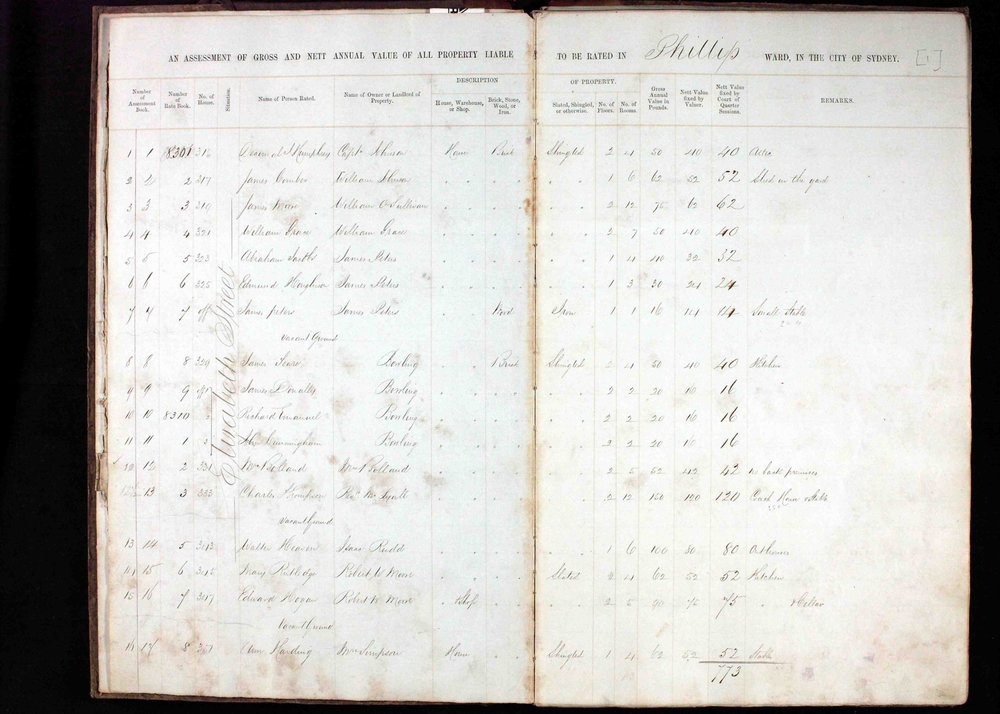 AN ASSESSMENT OF GROSS AND NETT ANNUAL VALUE OF ALL PROPERTY LIABLE TO BE RATED IN Phillip WARD, IN THE CITY OF SYDNEY. [1]
DESCRIPTION OF PROPERTY.
Number of Assessment Book. Number of Rate Book. No. of House. Situation. Name of Person Rated. Name of Owner or Landlord of Property. House, Warehouse, or Shop. Brick, Stone, Wood, or Iron. Slated, Shingled, or otherwise. No. of Floors. No. of Rooms. Gross Annual Value in Pounds. Nett Value fixed by Valuer. Nett Value fixed by Court of Quarter Sessions. REMARKS.
Elizabeth Street
1 1 8301 315 Humphrey Capt. Johnson House Brick Shingled 2 4 50 40 40
2 2 2 317 James Coombes William Johnson " " " " 1 6 62 52 52 Shed in the yard
3 3 3 319 James Moore William O'Sullivan " " " " 2 12 75 62 62
4 4 4 321 William Grace William Grace " " " " 2 7 50 40 40
5 5 5 323 Abraham James Peters " " " " 1 4 40 32 32
6 6 6 325 Edmund James Peters " " " " 1 3 30 24 24
7 7 7 off James Peters James Peters " Wood Iron 1 1 16 14 14 Small Stable
Vacant Ground
8 8 8 329 James Bowling " Brick Shingled 2 4 50 40 40 Kitchen
9 9 9 off James Donally Bowling " " " " 2 2 20 16 16
10 10 8310 Richard Emanuel Bowling " " " " 2 2 20 16 16
11 11 1 Cunningham Bowling " " " " 2 2 20 16 16
12 2 331 Mrs Holland Mrs Holland " " " " 2 5 52 42 42 no back premises
13 3 333 Charles Thompson Mc " " " " 2 12 150 120 120 Coach House & Stable
Vacant Ground
13 14 5 Walter Heaven Isaac Rudd " " " " 1 6 100 80 80
14 15 6 Mary Rutledge Robert W Moore " " Slated 2 4 62 52 52 Kitchen
15 16 7 Edward Hogan Robert W Moore " Shop " " " 2 5 90 75 75 " & Cellar
Vacant Ground
16 17 8 Ann Harding Mrs Simpson House " Shingled 1 4 62 52 52 Stable
773